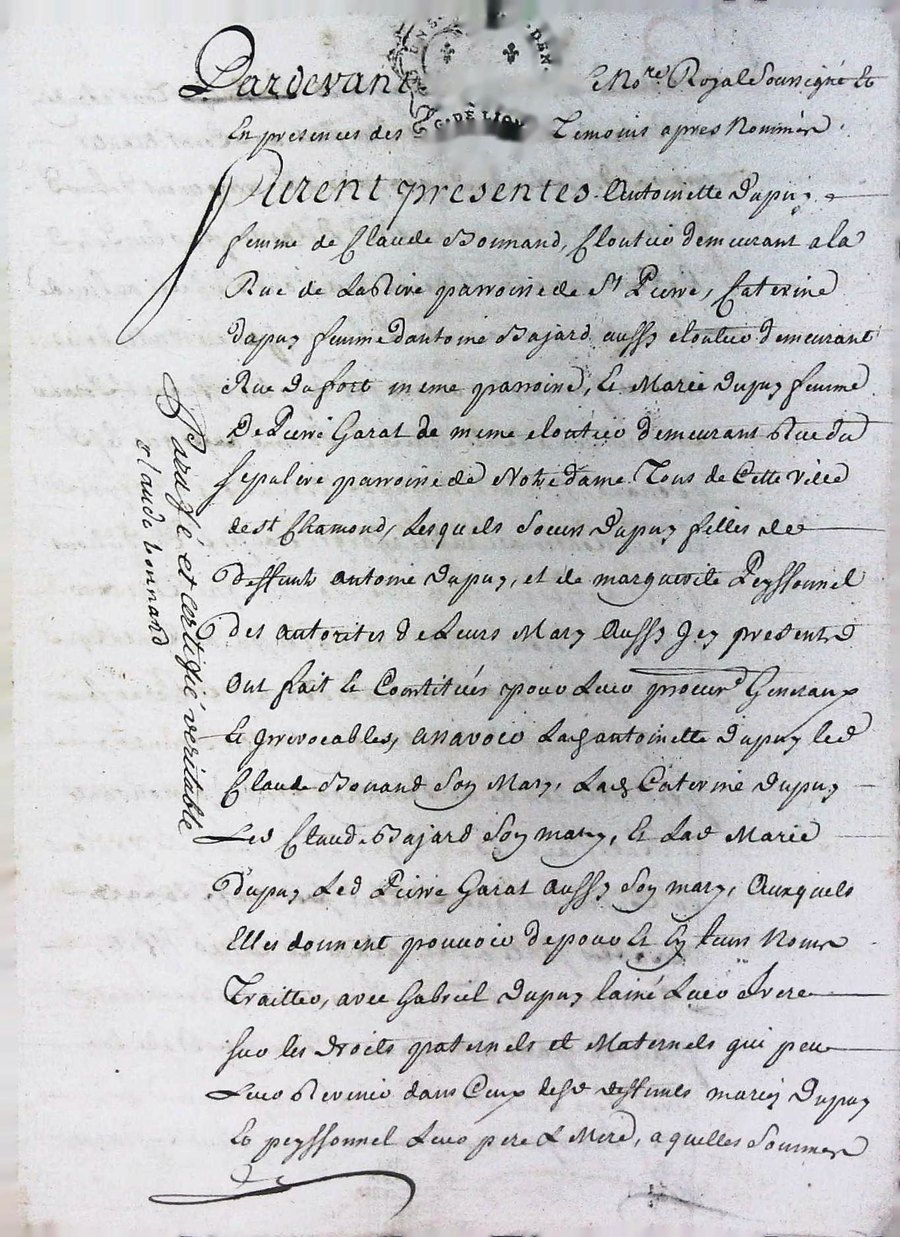 Pardevant Le Nore. Royal Soussigné Et
En presences des Temoins apres Nommés
G. DE LION
Furent presentes Antoinette Dupuy
femme de Claude Bonnand, Cloutier demeurant a la
Rue de La Rive parroisse de St Pierre, Caterine
Dupuy femme d'antoine Bajard aussy cloutier demeurant
Rue du fort meme parroisse, Et Marie Dupuy femme
De Pierre Garat de meme cloutier demeurant Rue du
sepulcre parroisse de Notre Dame Tous de Cette Ville
de St Chamond, Lesquels Soeurs Dupuy filles de
deffunts antoine Dupuy, et de marguerite Peyssonnel
des autorites de Leurs Mary Aussy Jcy presents
Ont fait Et Constitués pour Leur procurs Generaux
Et Jrrevocables, anavoir Lad antoinette Dupuy led
Claude Bonand Son Mary, Lad Caterine Dupuy
Led Claude Bajard Son mary, Et Lad Marie
Dupuy Led Pierre Garat Aussy Son mary, Auxquels
Elles donnent pouvoir de pour Et En Leurs Noms
Traitter, avec Gabriel Dupuy lainé Leur frere
sur les Droits paternels et Maternels qui peu
Leur Revenir dans Ceux desd deffunts mariés Dupuy
Et peyssonnel Leur pere & Mere, a quelles Sommes
Paraffé et certiffié veritable
claude bonnand